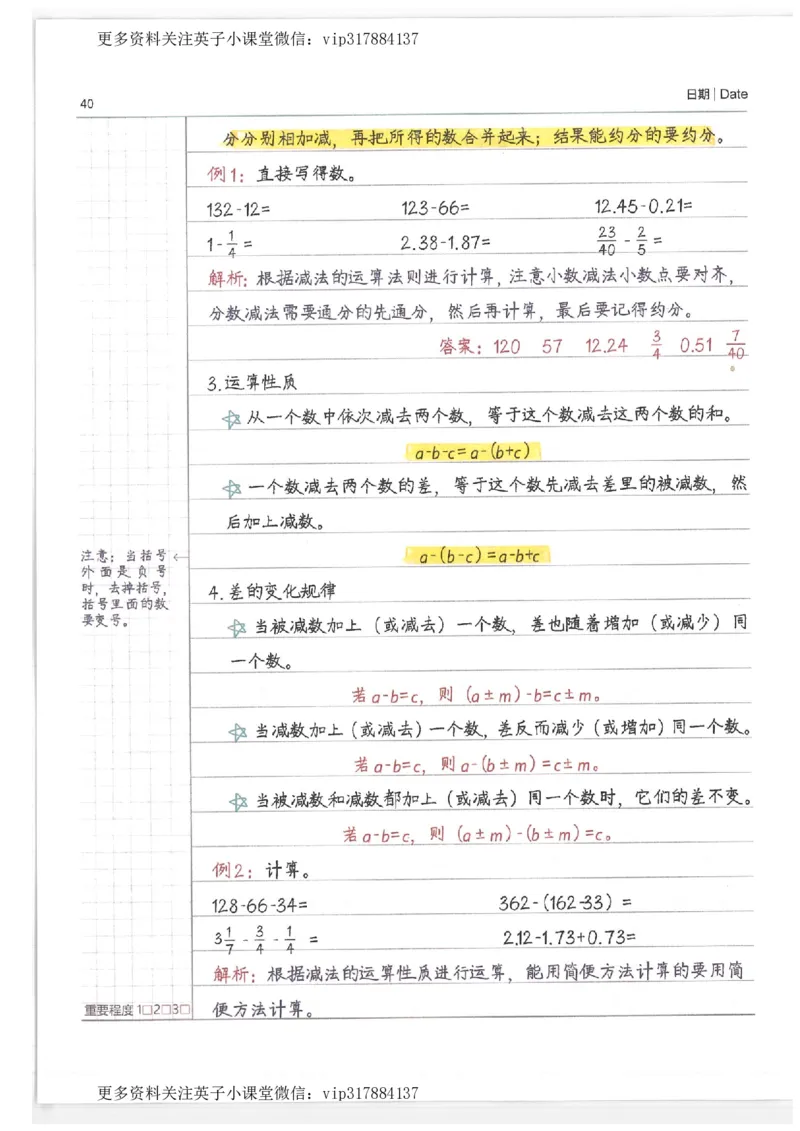 更多资料关注英子小课堂微信：vip317884137
40
日期 | Date
分分别相加减，再把所得的数合并起来；结果能约分的要约分。
例1：直接写得数。
132-12= 123-66= 12.45-0.21=
1-1/4= 2.38-1.87= 23/40-2/5=
解析：根据减法的运算法则进行计算，注意小数减法小数点要对齐，
分数减法需要通分的先通分，然后再计算，最后要记得约分。
答案：120 57 12.24 3/4 0.51 7/40
3.运算性质
从一个数中依次减去两个数，等于这个数减去这两个数的和。
a-b-c=a-(b+c)
一个数减去两个数的差，等于这个数先减去差里的被减数，然
后加上减数。
a-(b-c)=a-b+c
注意：当括号
外面是负号
时，去掉括号，
括号里面的数
要变号。
4.差的变化规律
当被减数加上（或减去）一个数，差也随着增加（或减少）同
一个数。
若a-b=c，则（a±m）-b=c±m。
当减数加上（或减去）一个数，差反而减少（或增加）同一个数。
若a-b=c，则a-(b±m)=c±m。
当被减数和减数都加上（或减去）同一个数时，它们的差不变。
若a-b=c，则（a±m)-(b±m)=c。
例2：计算。
128-66-34= 362-(162-33）=
3 1/7-3/4-1/4= 2.12-1.73+0.73=
解析：根据减法的运算性质进行运算，能用简便方法计算的要用简
便方法计算。
重要程度 1□2□3□
更多资料关注英子小课堂微信：vip317884137